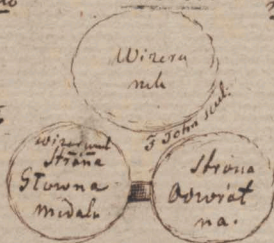 Wizeru
nek
J John scul.
wizerunk
Strana
Głowna
medalu
Strona
Odwrót
na.